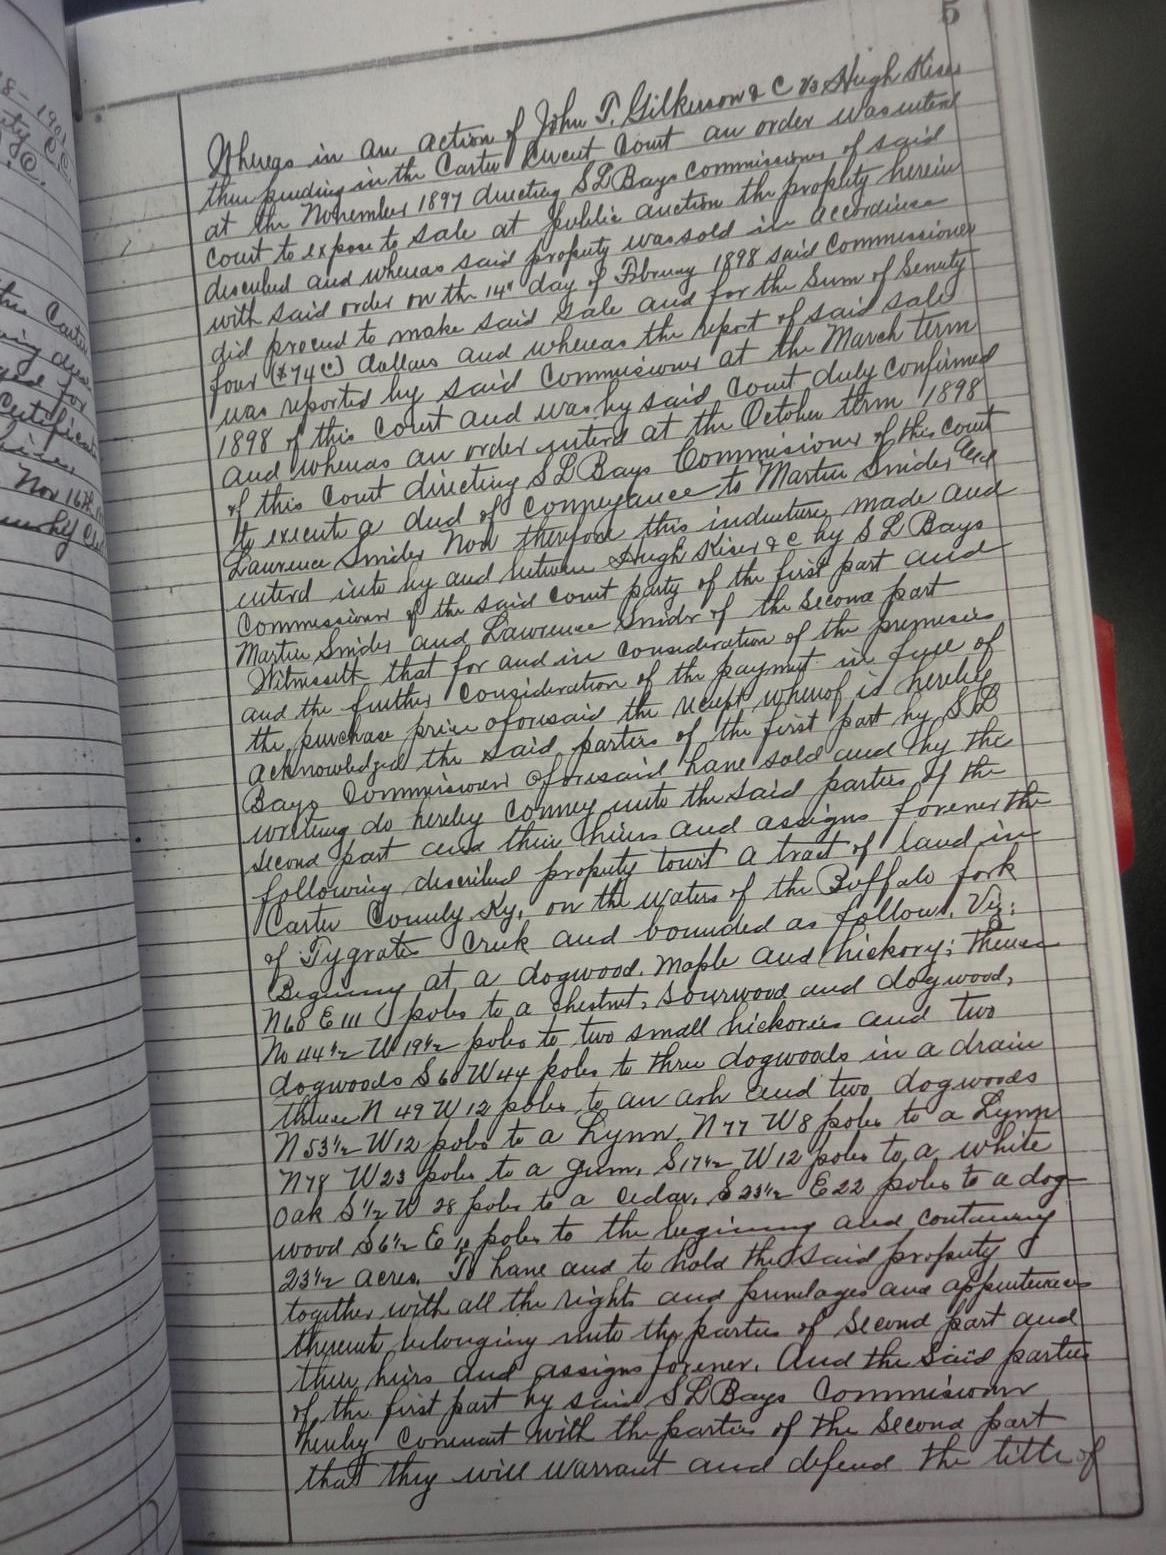 5
Whereas in an action of John T. Gilkerson & C vs Hugh Kiser
then pending in the Carter Circuit Court an order was enterd
at the November 1897 directing S L Bays commissioner of said
court to expose to sale at public auction the property herein
described and whereas said property was sold in accordince
with said order on the 14" day of February 1898 said commissioner
did proceed to make said sale and for the sum of Seventy
four ($74 ) dollars and whereas the report of said sale
was reported by said commissioner at the March term
1898 of this court and was by said court duly confirmed
and whereas an order enterd at the October term 1898
of this court directing S L Bays Commissioner of this court
to execute a deed of conveyance to Martin Snider and
Lawrence Snider Now therefore this indenture, made and
enterd into by and between Hugh Kiser & c by S L Bays
commissioner of the said court party of the first part and
Martin Snider and Lawrence Snider of the second part
Witnesseth that for and in consideration of the premises
and the further consideration of the payment in full of
the purchase price aforesaid the receipt whereof is hereby
acknowledged the said parties of the first part by S L
Bays commissioner aforesaid have sold and by the
writing do hereby convey unto the said parties of the
second part and their heirs and assigns forever the
following described property towit a tract of land in
Carter County Ky, on the waters of the Buffalo fork
of Tygrats Creek and bounded as follows, Viz:
Beginning at a dogwood, maple and hickory; thence
N 60 E 111 poles to a chestnut, sourwood and dogwood,
No 44 1/2 W 19 1/2 poles to two small hickories and two
dogwoods S 60 W 44 poles to three dogwoods in a drain
thence N 49 W 12 poles to an ash and two dogwoods
N 53 1/2 W 12 poles to a Lynn N 77 W 8 poles to a Lynn
N 78 W 23 poles to a gum, S 17 1/2 W 12 poles to a white
oak S 1/2 W 28 poles to a cedar, S 23 1/2 E 22 poles to a dog-
wood S 6 1/2 E poles to the beginning and containing
23 1/2 acres, To have and to hold the said property
together with all the rights and privilages and appurtenances
thereunto belonging unto the parties of second part and
their heirs and assigns forever. And the said parties
of the first part by said S L Bays Commisioner
hereby covenant with the parties of the second part
that they will warrant and defend the title of